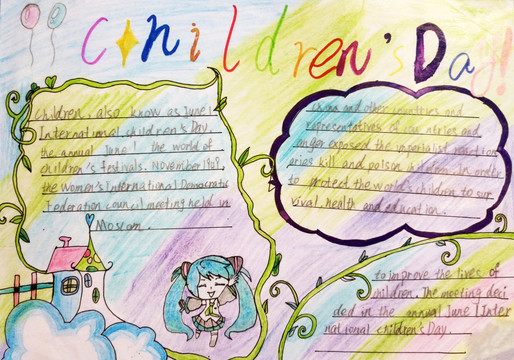 Children's Day!
Children, also know as June 1
International children's Day,
the annual June 1. the world of
children's festivals. November 1949,
the Women's International Democratic
Federation council meeting held in
Moscow.
China and other countries and
representatives of countries and
anger exposed the imperialist reaction
aries kill and poison children. in order
to protect the world's children to sur
vival, health and education.
to improve the lives of
children. The meeting deci
ded in the annual June 1 Inter
national children's Day.